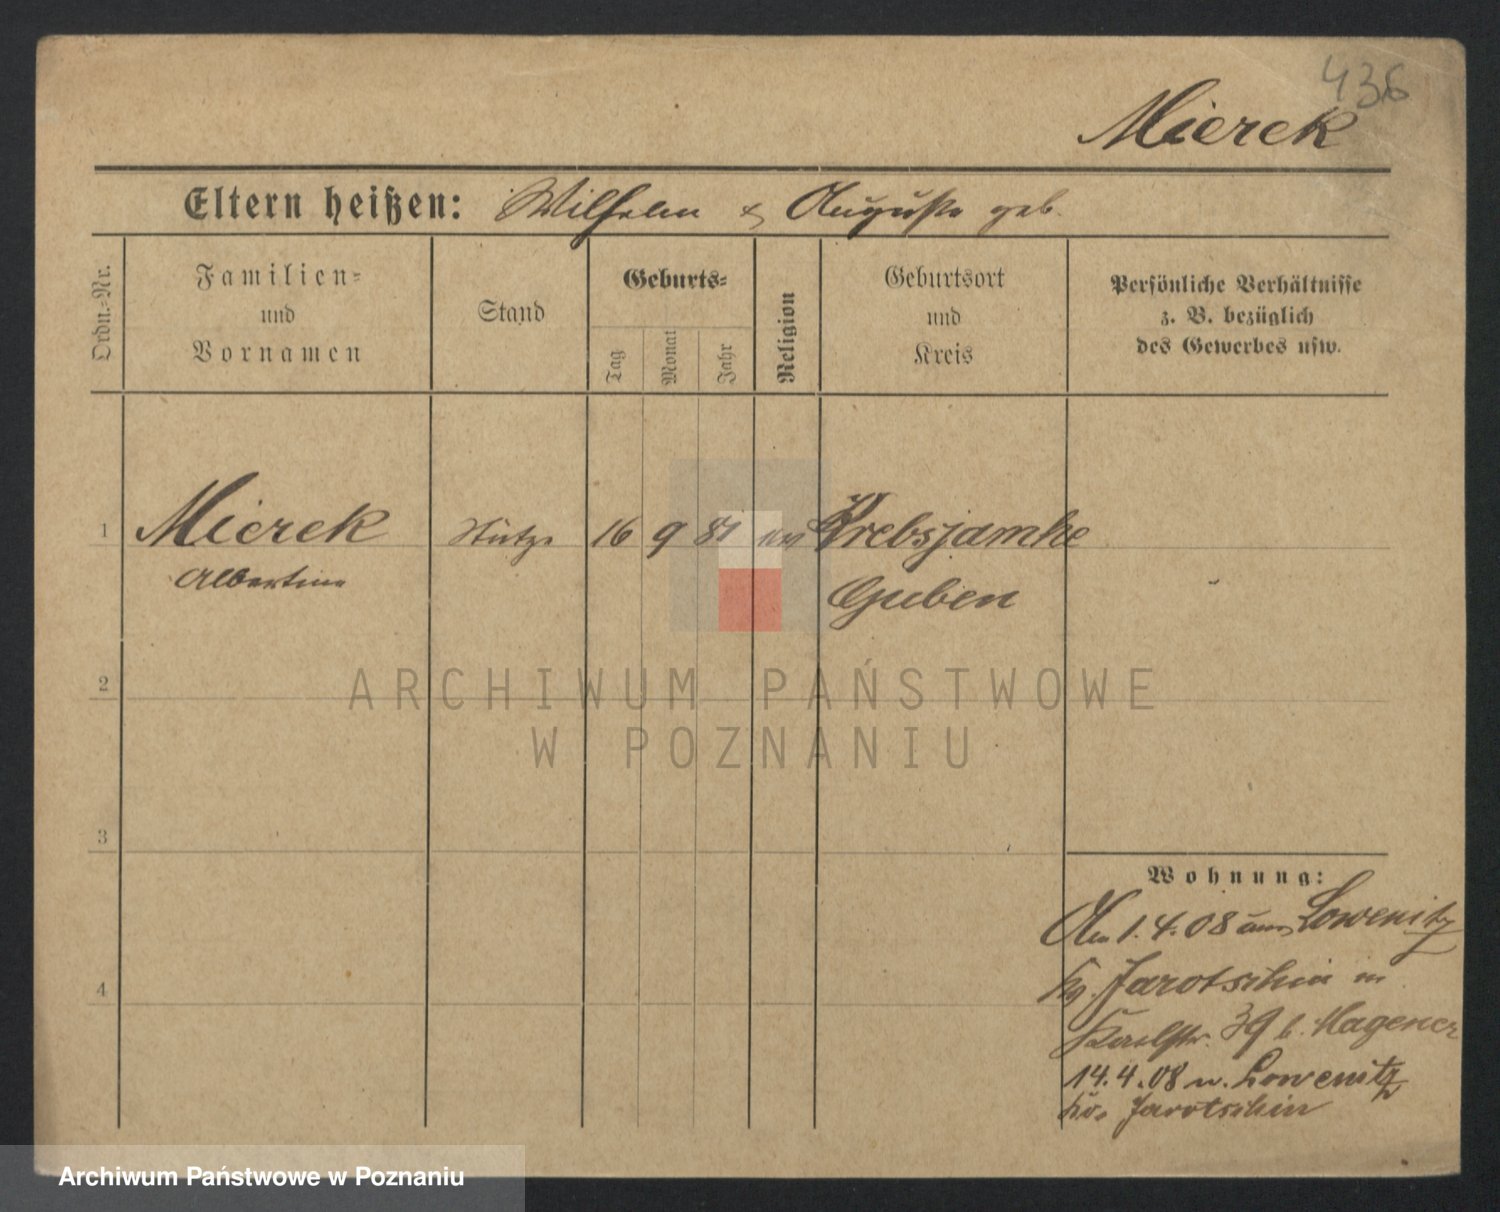 436
Mierek
Eltern heißen: Wilhelm & Auguste geb.
Ordn.-Nr.
Familien-
und
Vornamen
Stand
Geburts-
Tag
Monat
Jahr
Religion
Geburtsort
und
Kreis
Persönliche Verhältnisse
z. B. bezüglich
des Gewerbes usw.
1 Mierek Stütze 16 9 81 ev Krebsjamke
Albertine Guben
2
ARCHIWUM PAŃSTWOWE
W POZNANIU
3
Wohnung:
Am 1.4.08 aus Lowenitz
4 Kr. Jarotschin in
Karlstr. 39 b. Hagener
14.4.08 n. Lowenitz
Kr. Jarotschin
Archiwum Państwowe w Poznaniu